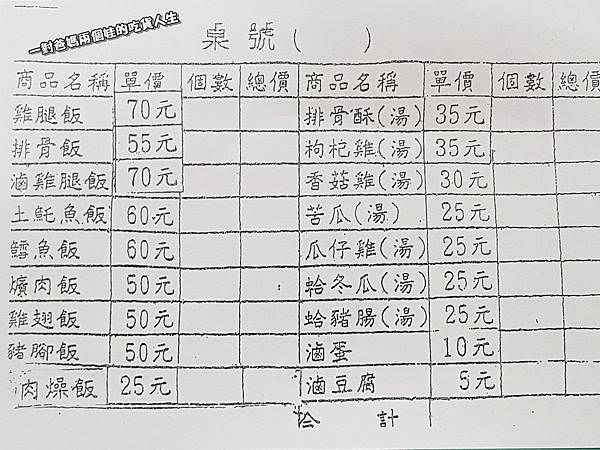 一對爸媽兩個娃的吃貨人生
桌號( )
商品名稱 單價 個數 總價 商品名稱 單價 個數 總價
雞腿飯 70元 排骨酥(湯) 35元
排骨飯 55元 枸杞雞(湯) 35元
滷雞腿飯 70元 香菇雞(湯) 30元
土魠魚飯 60元 苦瓜(湯) 25元
鱈魚飯 60元 瓜仔雞(湯) 25元
爌肉飯 50元 蛤冬瓜(湯) 25元
雞翅飯 50元 蛤豬腸(湯) 25元
豬腳飯 50元 滷蛋 10元
肉燥飯 25元 滷豆腐 5元
合計